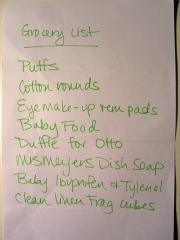 Grocery List
Puffs
Cotton rounds
Eye make-up rem pads
Baby Food
Duffle for Otto
Mrs Meyers Dish Soap
Baby Ibuprofen & Tylenol
Clean linen Frag cubes